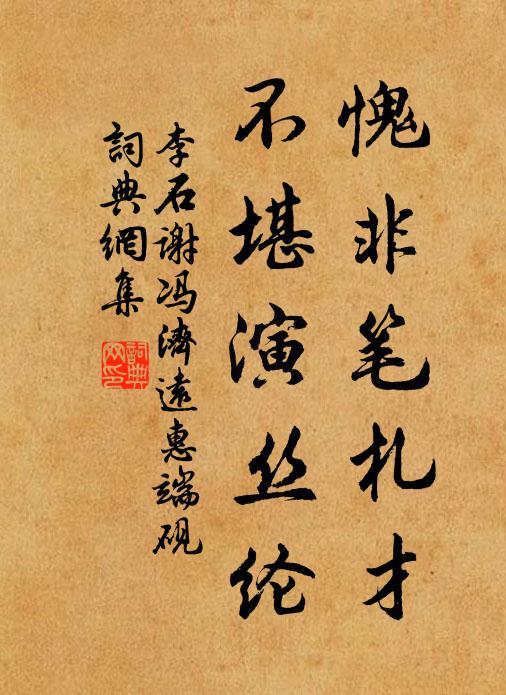 愧非笔札才
不堪演丝纶
李石谢冯濟遠惠端砚
詞典網集
詞典網印